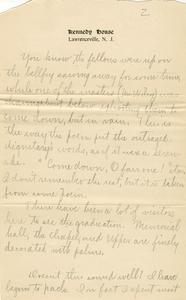 2
Kennedy House
Lawrenceville, N. J.
You know the fellows were up on
the belfry sawing away for some time,
while one of the masters (Mr. Wiley) was
below them to
come down, but in vain. I
the way the poem put the outraged
dignitary's words, as if it was a seven-
ske. "Come down, O fair one! etc.
I don't remember the rest, but it's taken
from some poem.
There have been a lot of visitors
here to see the graduation. Memorial
hall, the chapel, and Upper are finely
decorated with palms.
Doesn't this sound well? I have
begun to pack. In fact I spent most